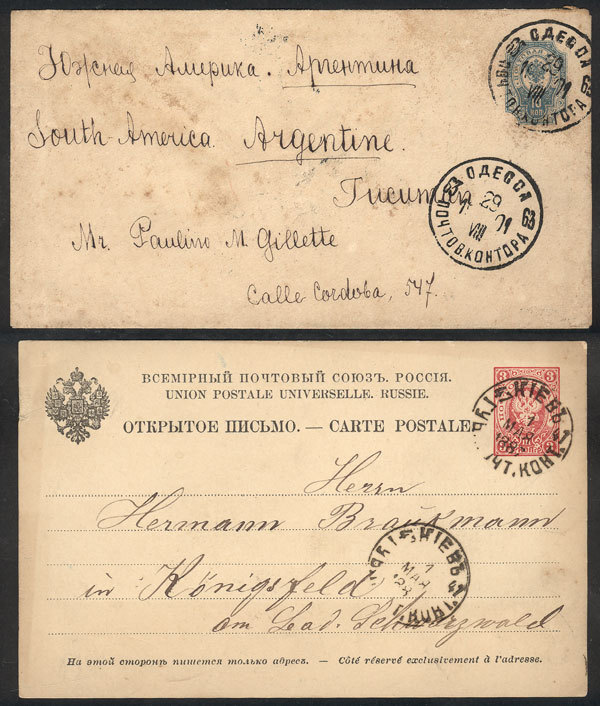 Южная Америка. Аргентина
South-America. Argentine.
Tucuman
Mr. Paulino M. Gillette
Calle Cordoba, 547
10 КОП
ОДЕССА
29
VIII
01
ПОЧТОВ.КОНТОРА
ОДЕССА
29
VIII
01
ПОЧТОВ.КОНТОРА
ВСЕМІРНЫЙ ПОЧТОВЫЙ СОЮЗЪ. РОССІЯ.
UNION POSTALE UNIVERSELLE. RUSSIE.
ОТКРЫТОЕ ПИСЬМО. — CARTE POSTALE
3 3
КІЕВЪ
7
МАР
Herrn
Hermann Braukmann
in Königsfeld
am Bad. Schwarzwald
КІЕВЪ
7
МАР
На этой сторонѣ пишется только адресъ. — Côté réservé exclusivement à l'adresse.